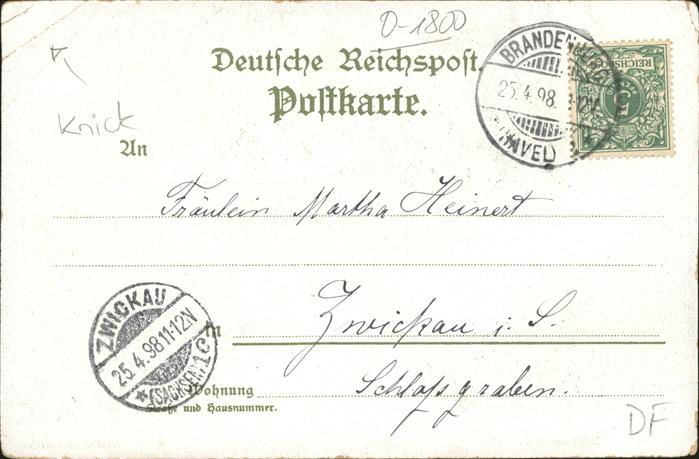 D-1800
Deutsche Reichspost
Postkarte.
BRANDENBURG
25.4.98.
(HAVEL)
REICHSPOST
5
Knick
An
Fräulein Martha Heinert
ZWICKAU
25.4.98 11-12N
*(SACHSEN) 1c
in
Zwickau i. S.
Wohnung
Straße und Hausnummer.
Schloßgraben.
DF